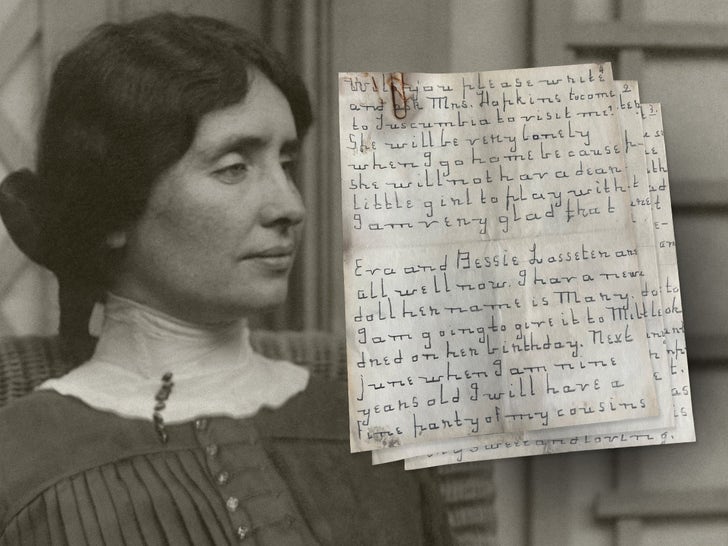 Will you please write
and ask Mrs. Hopkins to come
to Tuscumbia to visit me?
She will be very lonely
when I go home because
she will not hav a dear
little girl to play with.
I am very glad that
Eva and Bessie Lasseter are
all well now. I hav a new
doll her name is Mary.
I am going to give it to Mill
dred on her birthday. Next
june when I am nine
years old I will have a
fine party of my cousins
2
3.
sweet and loving